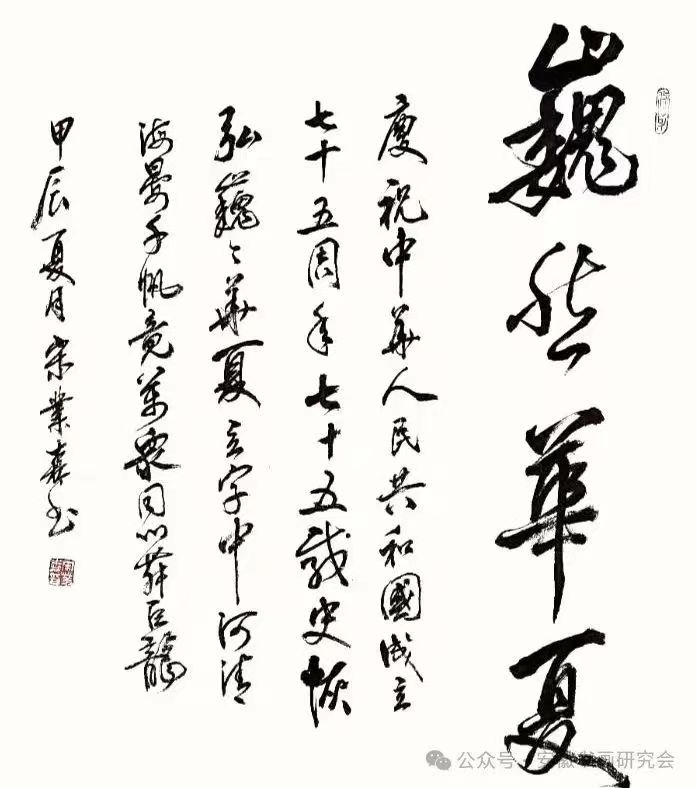 巍然華夏
慶祝中華人民共和國成立
七十五周年七十五載史恢
弘巍〻華夏立宇中河清
海晏千帆竞萬眾同心舞巨龍
甲辰夏月宋業书
公众号 · 安徽书画研究会